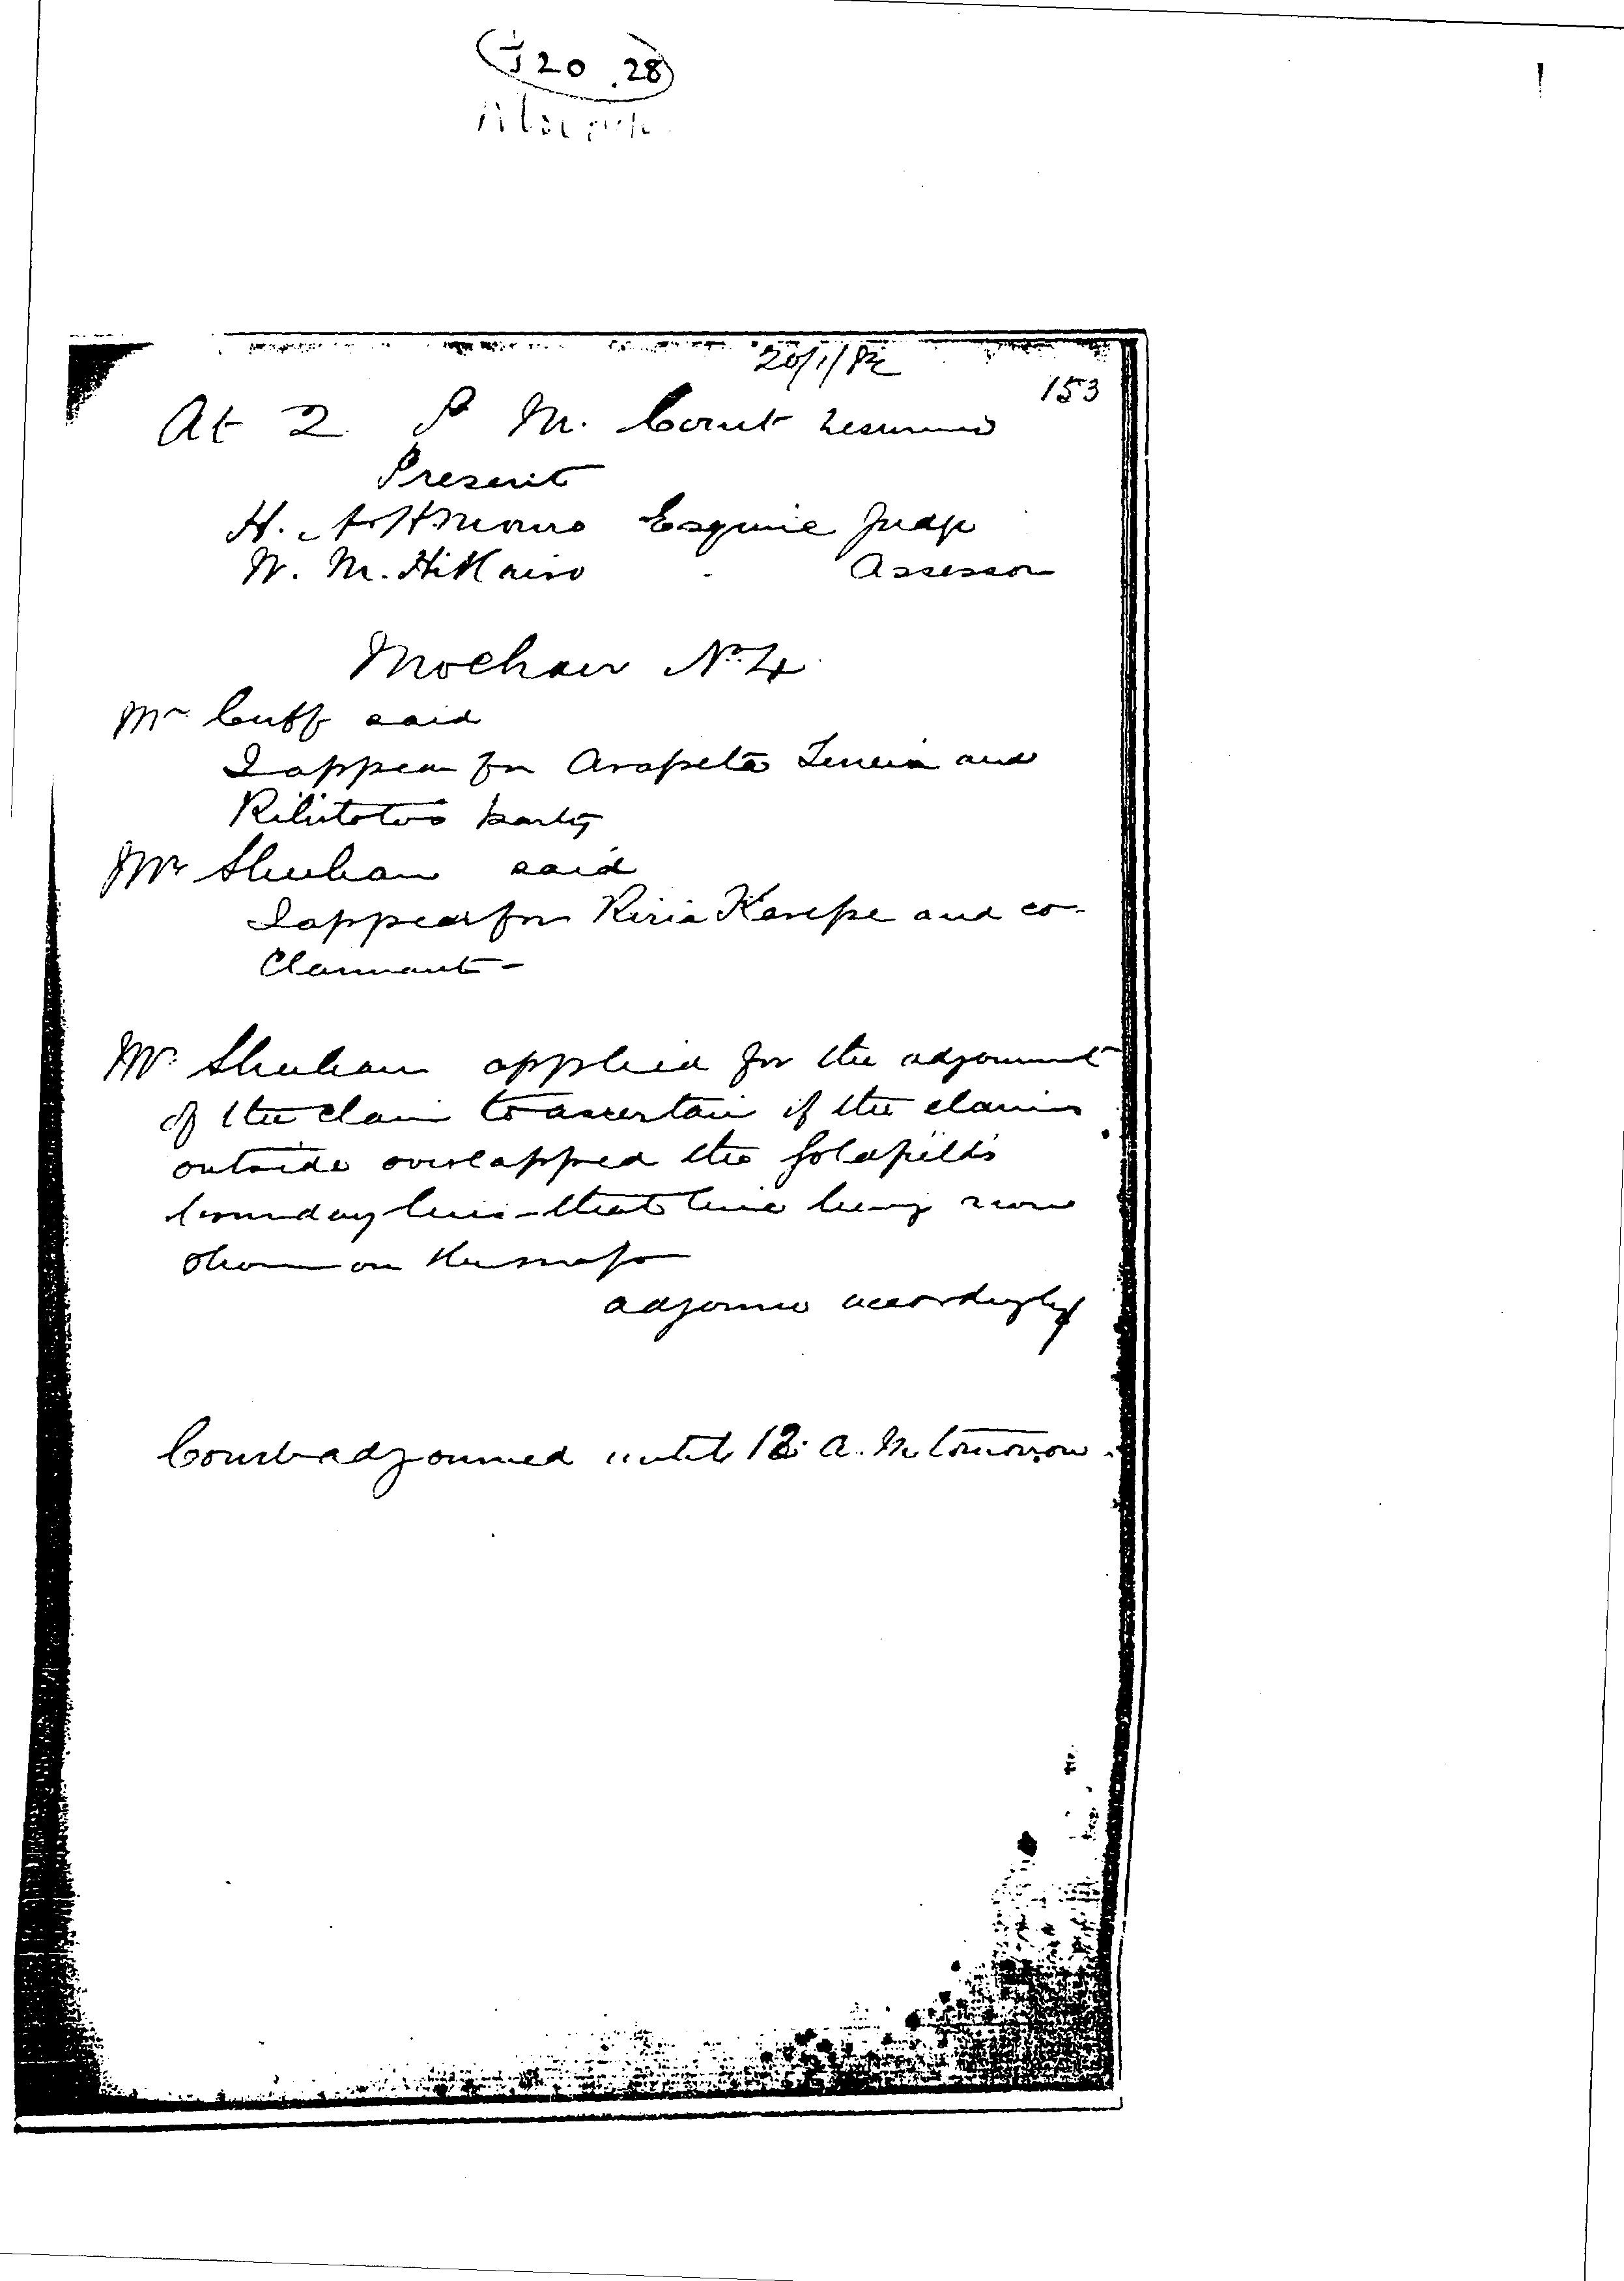 J 20 .28
20/1/82
153
At 2 P M. Court resumed
Present
H. A. H Monro Esquire Judge
W. M. Hikairo Assessor
Moehau No. 4
Mr Cuff said
I appear for Arapeta and
party
Mr Sheehan said
I appear for Riria Karepe and co-
Claimant -
Mr Sheehan applied for the adjournment
of the claim to ascertain if the claims
outside overlapped the Goldfields
boundary line - that line being now
shown on the map
adjourned accordingly
Court adjourned until A. M tomorrow.